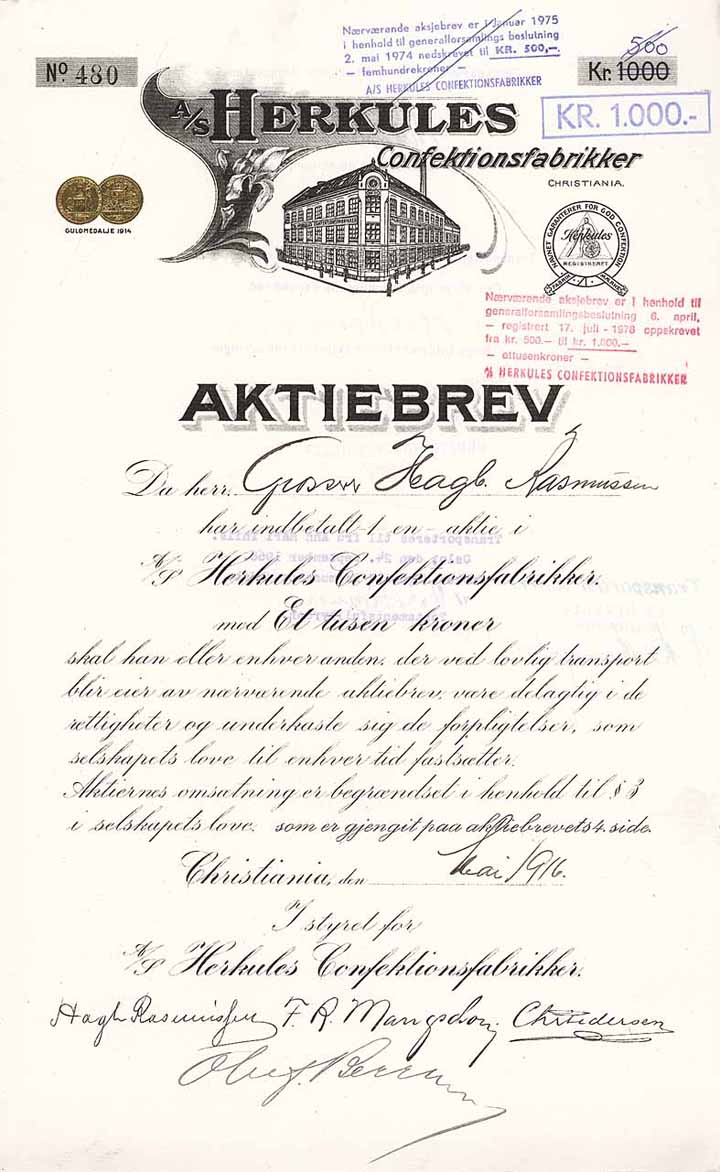 Nærværende aksjebrev er 1 januar 1975
i henhold til generalforsamlings beslutning
2. mai 1974 nedskrevet til KR. 500,—.
— femhundrekroner —
A/S HERKULES CONFEKTIONSFABRIKKER
No 480
500
Kr. 1000
KR. 1.000.-
A/S HERKULES
Confektionsfabrikker
CHRISTIANIA.
GULDMEDALJE 1914
NAVNET GARANTERER FOR GOD CONFEKTION
Herkules
REGISTRERET
FABRIK MÆRKE
Nærværende aksjebrev er i henhold til
generalforsamlingsbeslutning 6. april,
— registrert 17. juli - 1978 oppskrevet
fra kr. 500.— til kr. 1.000.—
— ettusenkroner —
A/S HERKULES CONFEKTIONSFABRIKKER
AKTIEBREV
Da herr. Grosserer Hagb. Rasmussen
har indbetalt 1 en - aktie i
A/S Herkules Confektionsfabrikker.
med Et tusen kroner
skal han eller enhver anden, der ved lovlig transport
blir eier av nærværende aktiebrev, være delagtig i de
rettigheter og underkaste sig de forpligtelser, som
selskapets love til enhver tid fastsætter.
Aktiernes omsætning er begrændset i henhold til § 3
i selskapets love, som er gjengit paa aktiebrevets 4. side.
Christiania, den Mai 1916.
I styret for
A/S Herkules Confektionsfabrikker.
Hagb Rasmussen F. R. Chr. Pedersen